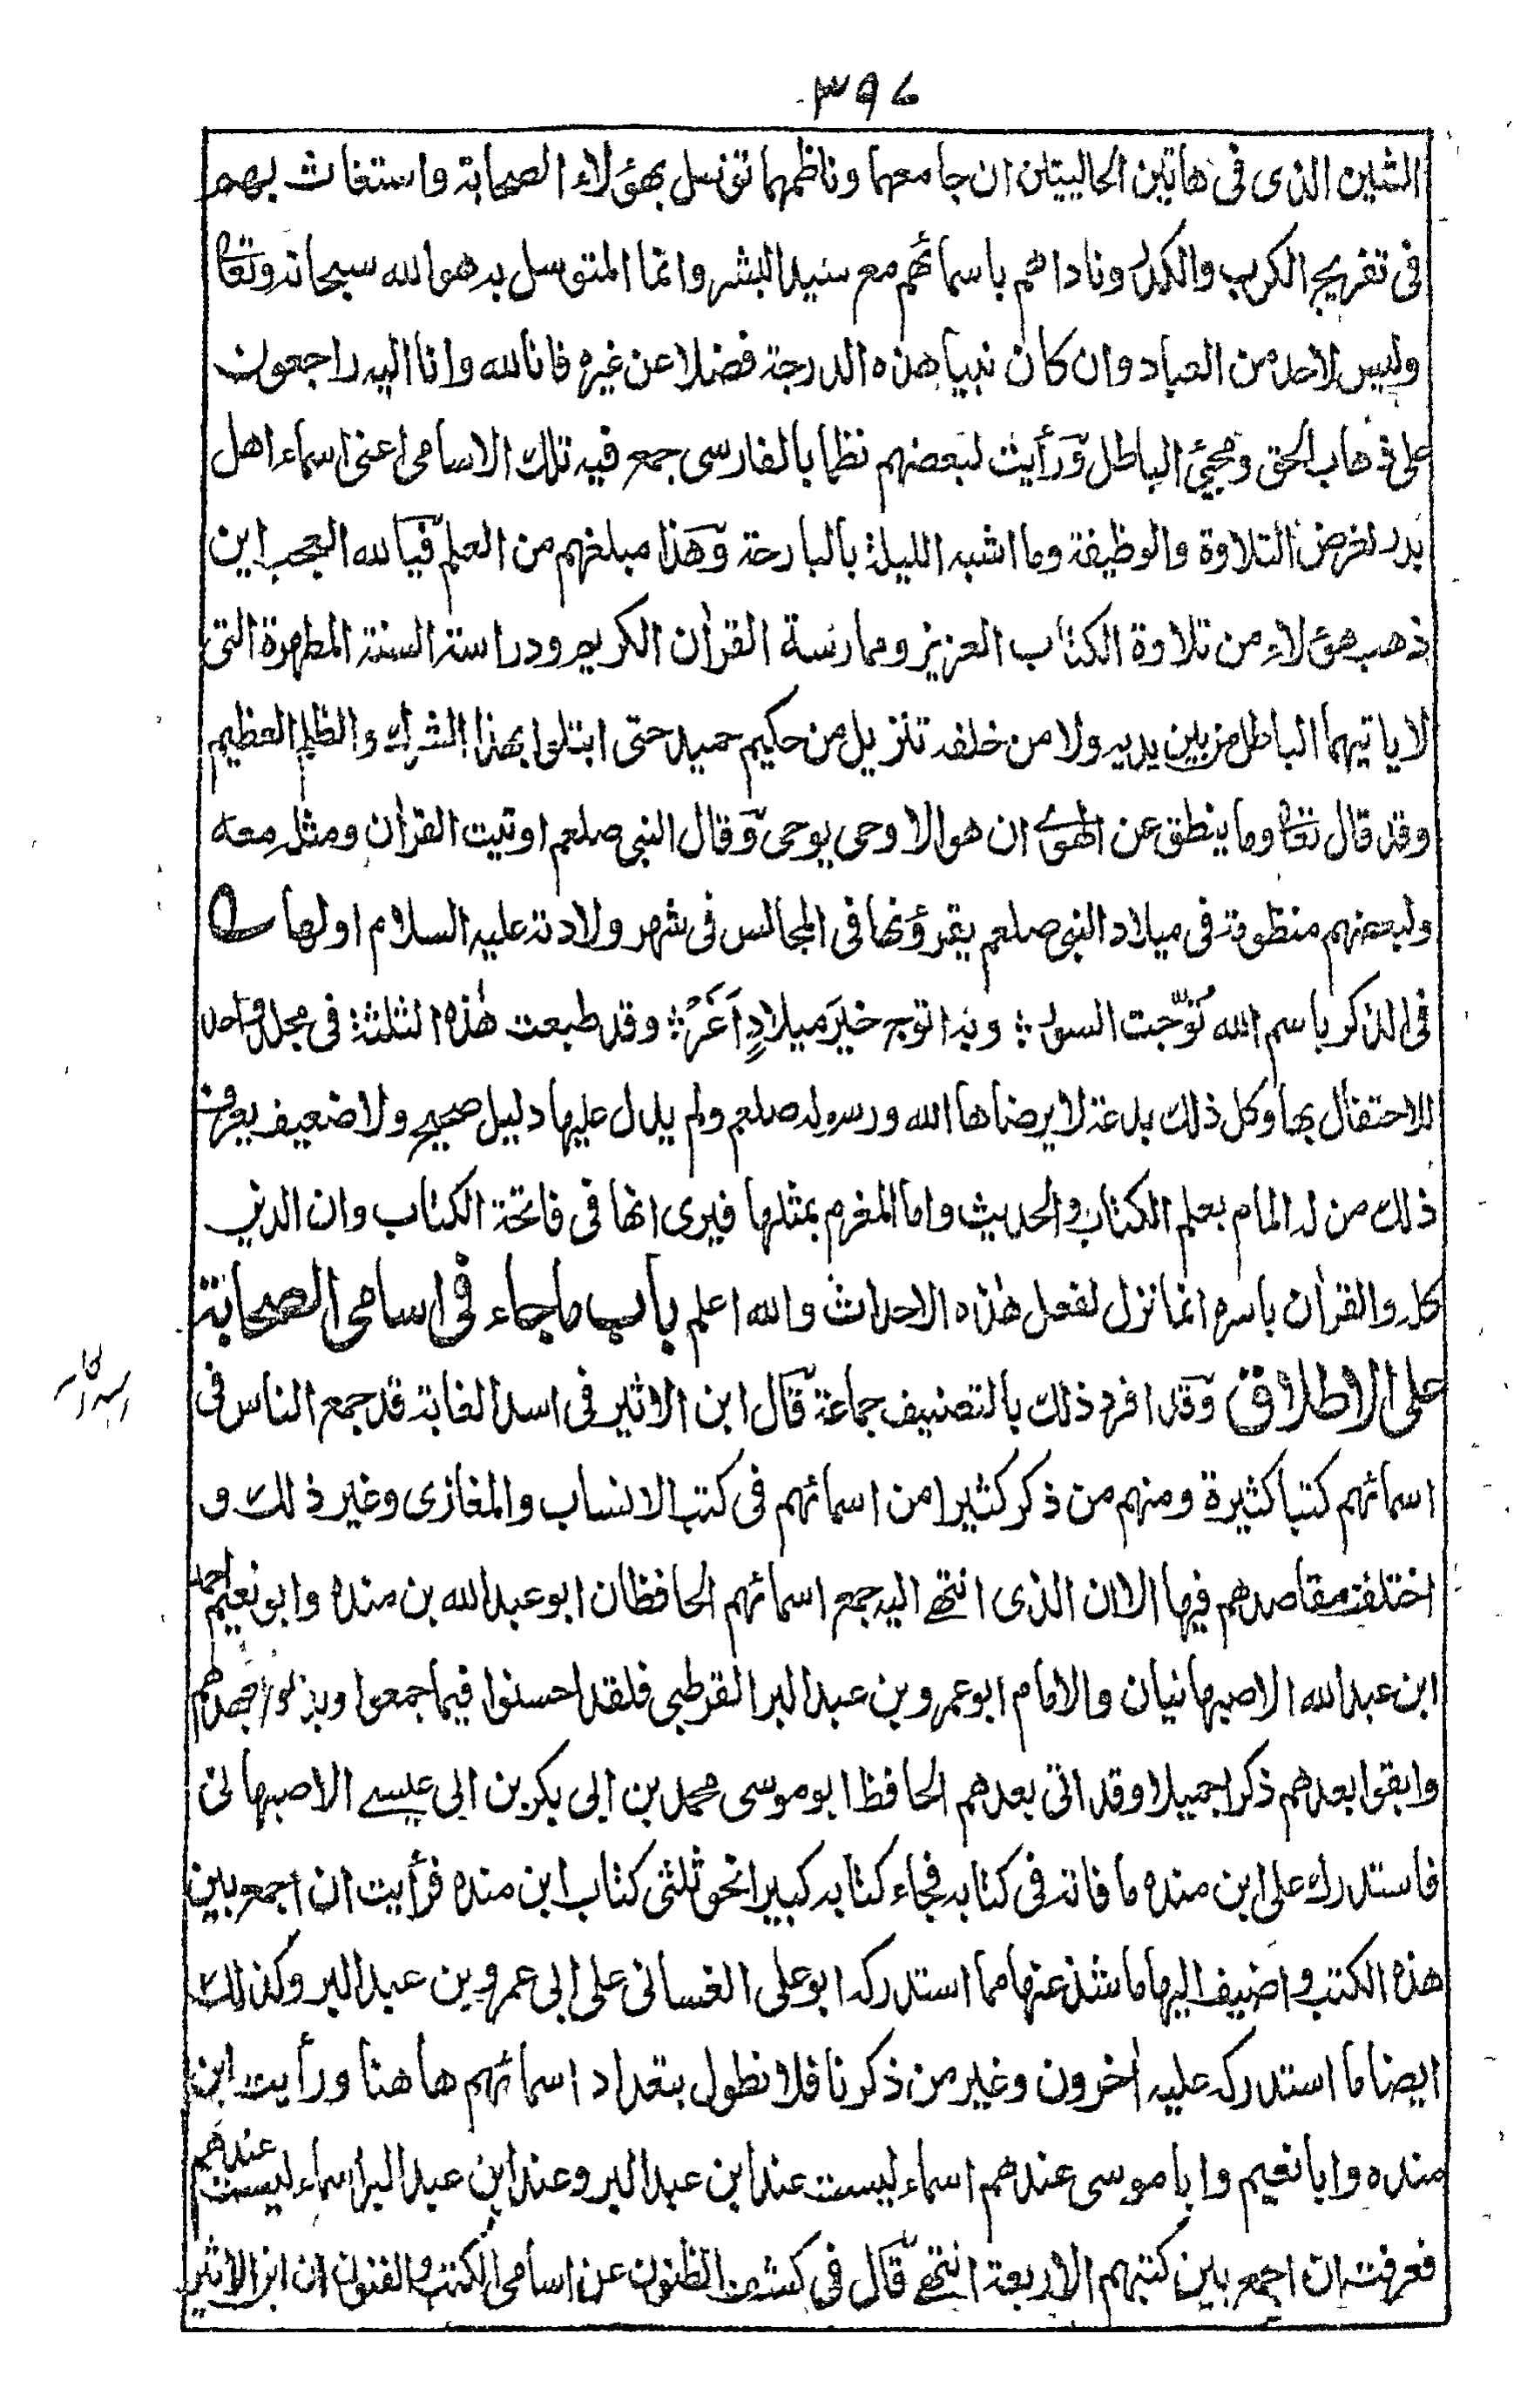 ٣٩٧
الشين الذى فى هاتين الحاليتين ان جامعهما وناظمهما توسل بهؤلاء الصحابة واستغاث بهم
فى تفريج الكرب والكدر وناداهم باسمائهم مع سيد البشر وانما المتوسل به هو الله سبحانه وتعا
وليس لاحد من العباد وان كان نبيا هذه الدرجة فضلا عن غيره فانا لله وانا اليه راجعون
على ذهاب الحق ومجئ الباطل ورأيت لبعضهم نظما بالفارسى جمع فيه تلك الاسامى اعنى اسماء اهل
بدر لغرض التلاوة والوظيفة وما اشبه الليلة بالبارحة وهذا مبلغهم من العلم فيا لله العجب اين
ذهب هؤلاء من تلاوة الكتاب العزيز وممارسة القرأن الكريم ودراسة السنة المطهرة التى
لا ياتيهما الباطل من بين يديه ولا من خلفه تنزيل من حكيم حميد حتى ابتلوا بهذا الشرك والظلم العظيم
وقد قال تعا وما ينطق عن الهوى ان هو الا وحى يوحى وقال النبى صلعم اوتيت القرأن ومثله معه
ولبعضهم منظومة فى ميلاد النبى صلعم يقرؤنها فى المجالس فى شهر ولادته عليه السلام اولها
فى الذكر باسم الله تُوّجت السور ؛ وبدا توج خيرَ ميلادٍ اَغَرّ ؛ وقد طبعت هٰذه الثلثة فى مجلد واحد
للاحتفال بها وكل ذلك بدعة لا يرضاها الله ورسوله صلعم ولم يدل عليها دليل صحيح ولا ضعيف يعرف
ذلك من له المام بعلم الكتاب والحديث واما المغرم بمثلها فيرى انها فى فاتحة الكتاب وان الدين
كله والقرأن باسره انما نزل لفعل هٰذه الاحداث والله اعلم باب ماجاء فى اسامى الصحابة
على الاطلاق وقد افرد ذلك بالتصنيف جماعة قال ابن الاثير فى اسد الغابة قد جمع الناس فى
اسمائهم كتبا كثيرة ومنهم من ذكر كثيرا من اسمائهم فى كتب الانساب والمغازى وغير ذلك و
اختلفت مقاصدهم فيها الا ان الذى انتهى اليه جمع اسمائهم الحافظان ابو عبد الله بن منده وابو نعيم احمد
ابن عبد الله الاصبهانيان والامام ابو عمرو بن عبد البر القرطبى فلقد احسنوا فيما جمعوا وبذلوا جهدهم
وابقوا بعدهم ذكرا جميلا وقد اتى بعدهم الحافظ ابو موسى محمد بن ابى بكر بن ابى عيسى الاصبهانى
فاستدرك على ابن منده ما فاته فى كتابه فجاء كتابه كبيرا نحو ثلثى كتاب ابن منده فرأيت ان اجمع بين
هذه الكتب واضيف اليها ما شذ عنها مما استدركه ابو على الغسانى على ابى عمرو بن عبد البر وكذلك
ايضا ما استدركه عليه أخرون وغير من ذكرنا فلا نطول بتعداد اسمائهم هاهنا ورأيت ابن
منده وابا نعيم وابا موسى عندهم اسماء ليست عند ابن عبد البر وعند ابن عبد البر اسماء ليست عندهم
فعرفت ان اجمع بين كتبهم الاربعة انتهى قال فى كشف الظنون عن اسامى الكتب والفنون ان ابن الاثير